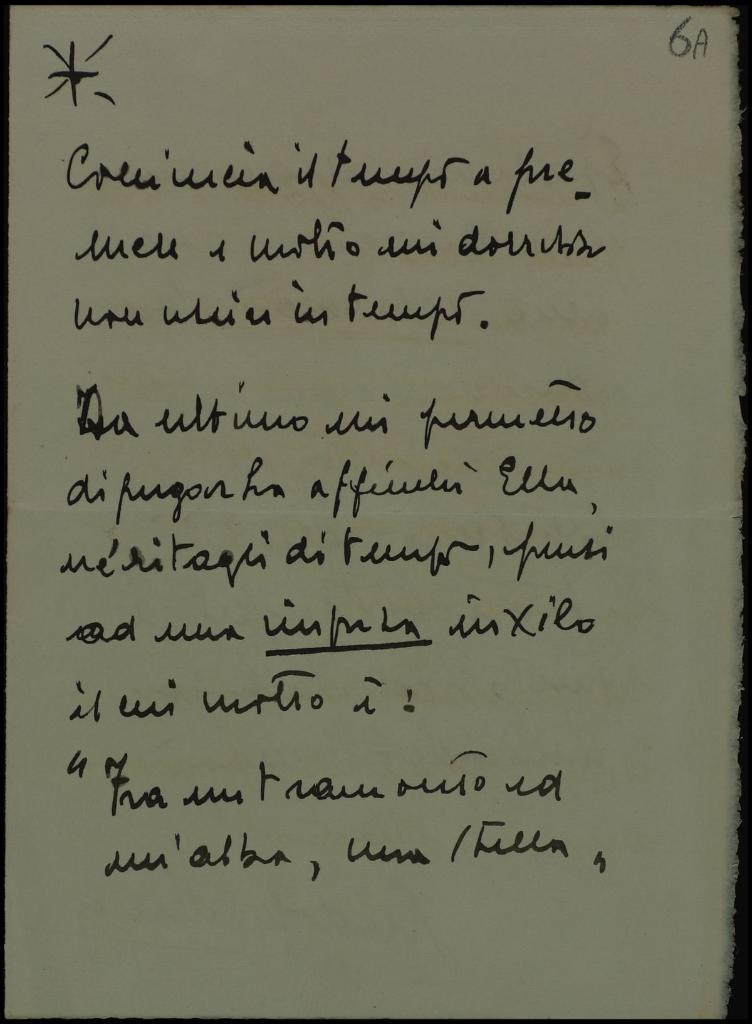 6A
Comincia il tempo a pre-
mere e molto mi dorrebbe
non uscire in tempo.
Da ultimo mi permetto
di pregarla affinchè Ella,
ne' ritagli di tempo, pensi
ad una impresa in Xilo
il cui motto è:
"Fra un tramonto ed
un'alba, una stella"